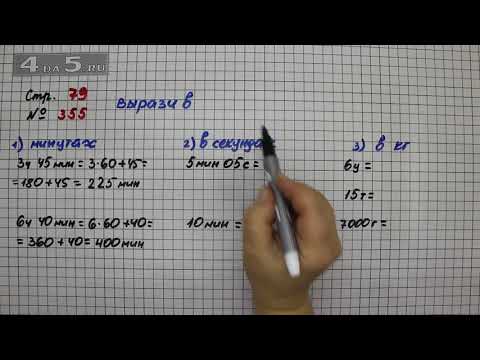 4 DA 5.RU
Стр. 79
№ 355
Вырази в
1) минутах
3ч 45 мин = 3·60+45=
= 180 + 45 = 225 мин
6ч 40 мин = 6·60+40=
= 360 + 40 = 400 мин
2) в секунда
5 мин 05 с =
10 мин =
3) в кг
6ц =
15т =
7000г =